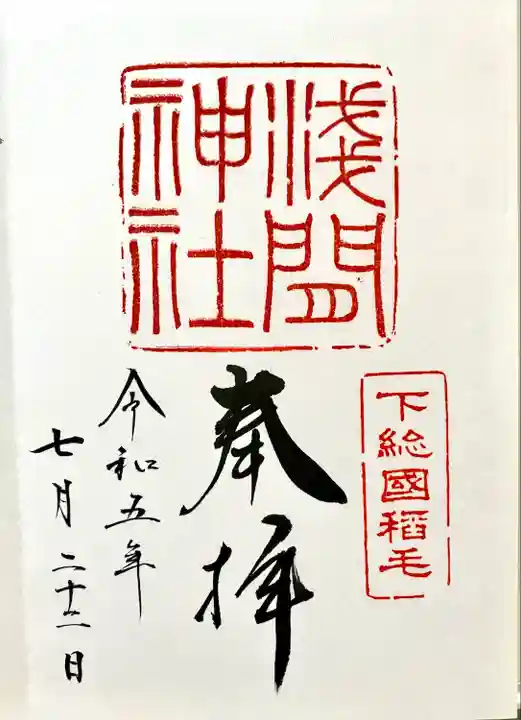 淺間
神社
下総國稲毛
奉拝
令和五年
七月二十二日